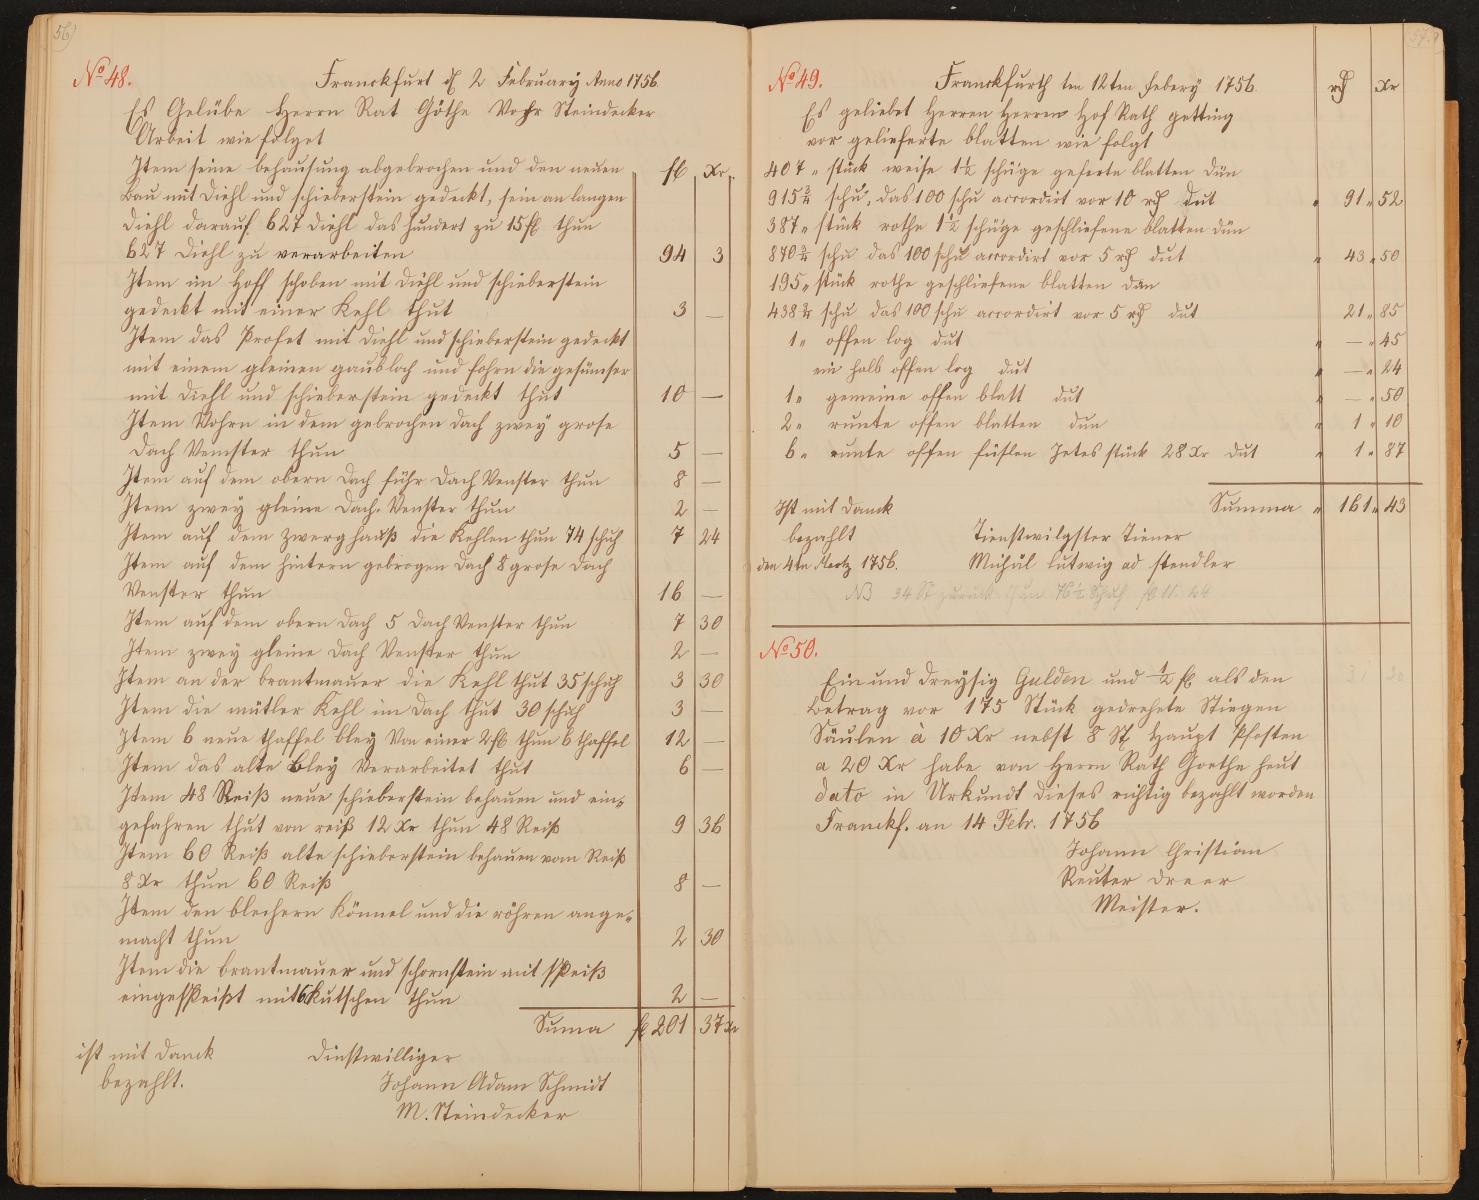 56
No 48.
Franckfurt d 2 February Anno 1756
Es Gelübe Herrn Rat Göthe Vohr Steindecker
Arbeit wie folget
Item seine behausung abgebrochen und den neuen
Bau mit Diehl und schieberstein gedeckt, sein an langen
Diehl darauf 627 Diehl das hundert zu 15 fl thun
fl Xr.
627 Diehl zu verarbeiten 94 3
Item im Hoff schoben mit Diehl und schieberstein
gedeckt mit einer Kehl thut 3 —
Item das Profet mit Diehl und schieberstein gedeckt
mit einem gleinen gaubloch und fohrn die gesümser
mit Diehl und schieberstein gedeckt thut 10 —
Item Vohrn in dem gebrochen dach zwey grose
Dach Venster thun 5 —
Item auf dem obern Dach führ Dach Venster thun 8 —
Item zwey gleine Dach Venster thun 2 —
Item auf dem Zwerghauß die Kehlen thun 74 schuh 7 24
Item auf dem hintern gebrogen Dach 8 grose Dach
Venster thun 16 —
Item auf dem obern Dach 5 Dach Venster thun 7 30
Item zwey gleine Dach Venster thun 2 —
Item an der brantmauer die Kehl thut 35 schuh 3 30
Item die mütler Kehl im Dach thut 30 schuh 3 —
Item 6 neue thaffel bley Von einer 2 fl thun 6 thaffel 12 —
Item das alte Bley Verarbeitet thut 6 —
Item 48 Reiß neue schieberstein behauen und ein=
gefahren thut von reiß 12 Xr thun 48 Reiß 9 36
Item 60 Reiß alte schieberstein behauen vom Reiß
8 Xr thun 60 Reiß 8 —
Item den blechern Könnel und die röhren ange=
macht thun 2 30
Item die brantmauer und schornstein mit speiß
eingespeißt mit 6 Kutschen thun 2 —
Suma fl 201 37 Xr
ist mit Danck Dinstwilliger
bezahlt. Johann Adam Schmidt
M. Steindecker
57.
No 49.
Franckfurth ten 12ten Febery 1756
rth Xr
Es geliebet Herren Herren Hof Rath getting
vor gelieferte blatten wie folgt
407 " stück weise 1½ schü'ge geserte blatten dün
915¾ schu, das 100 schu accordirt vor 10 rth dut " 91 " 52
387 " stück rothe 1½ schü'ge geschliefene blatten dün
870¾ schu das 100 schu accordirt vor 5 rth dut " 43 " 50
195 " stück rothe geschliefene blatten dün
438¾ schu das 100 schu accordirt vor 5 rth dut 21 " 85
1 " offen log dut " — " 45
ein halb offen log dut " — " 24
1 " gemeine offen blatt dut " — " 50
2 " runte offen blatten dun " 1 " 10
6 " runte offen füßlen Jetes stück 28 Xr dut " 1 " 87
Ist mit Danck Summa " 161 " 43
bezahlt Tienstwilgster Tiener
den 4tn Mertz 1756. Michäl lutwig ad stendler
NB 34 St zurück thun 76½ Schuh fl 11. 24
No 50.
Ein und Dreysig Gulden und ½ fl als den
Betrag vor 175 Stück gedrehete Stiegen
Säulen à 10 Xr nebst 8 St Haupt Pfosten
a 20 Xr habe von Herrn Rath Goethe heut
dato in Urkundt dieses richtig bezahlt worden
Franckf. an 14 Febr. 1756
Johann Christian
Reuter Dreer
Meister.